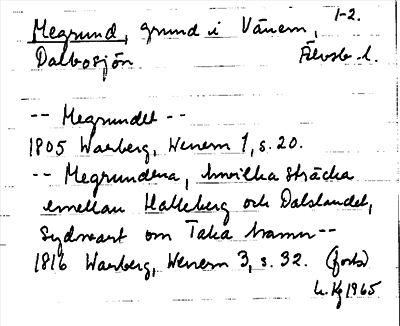 Megrund, grund i Vänern, 1-2.
Dalbosjön. Älvsb. l.
-- Megrundet --
1805 Warberg, Wenern 1, s. 20.
-- Megrundena, hvilka sträcka
emellan Halleberg och Dalslandet,
sydwart om Taka hamn --
1816 Warberg, Wenern 3, s. 32. (forts)
1965